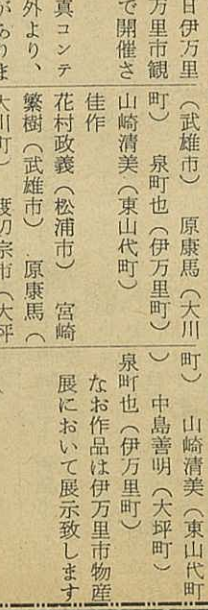 日伊万里
万里市観
で開催さ
真コンテ
外より、
がありま
（武雄市）　原康馬（大川
町）　泉町也（伊万里町）
山崎清美（東山代町）
佳作
花村政義（松浦市）　宮崎
繁樹（武雄市）　原康馬（
大川町）　（大坪
町）　山崎清美（東山代町
）　中島善明（大坪町）
泉町也（伊万里町）
なお作品は伊万里市物産
展において展示致します